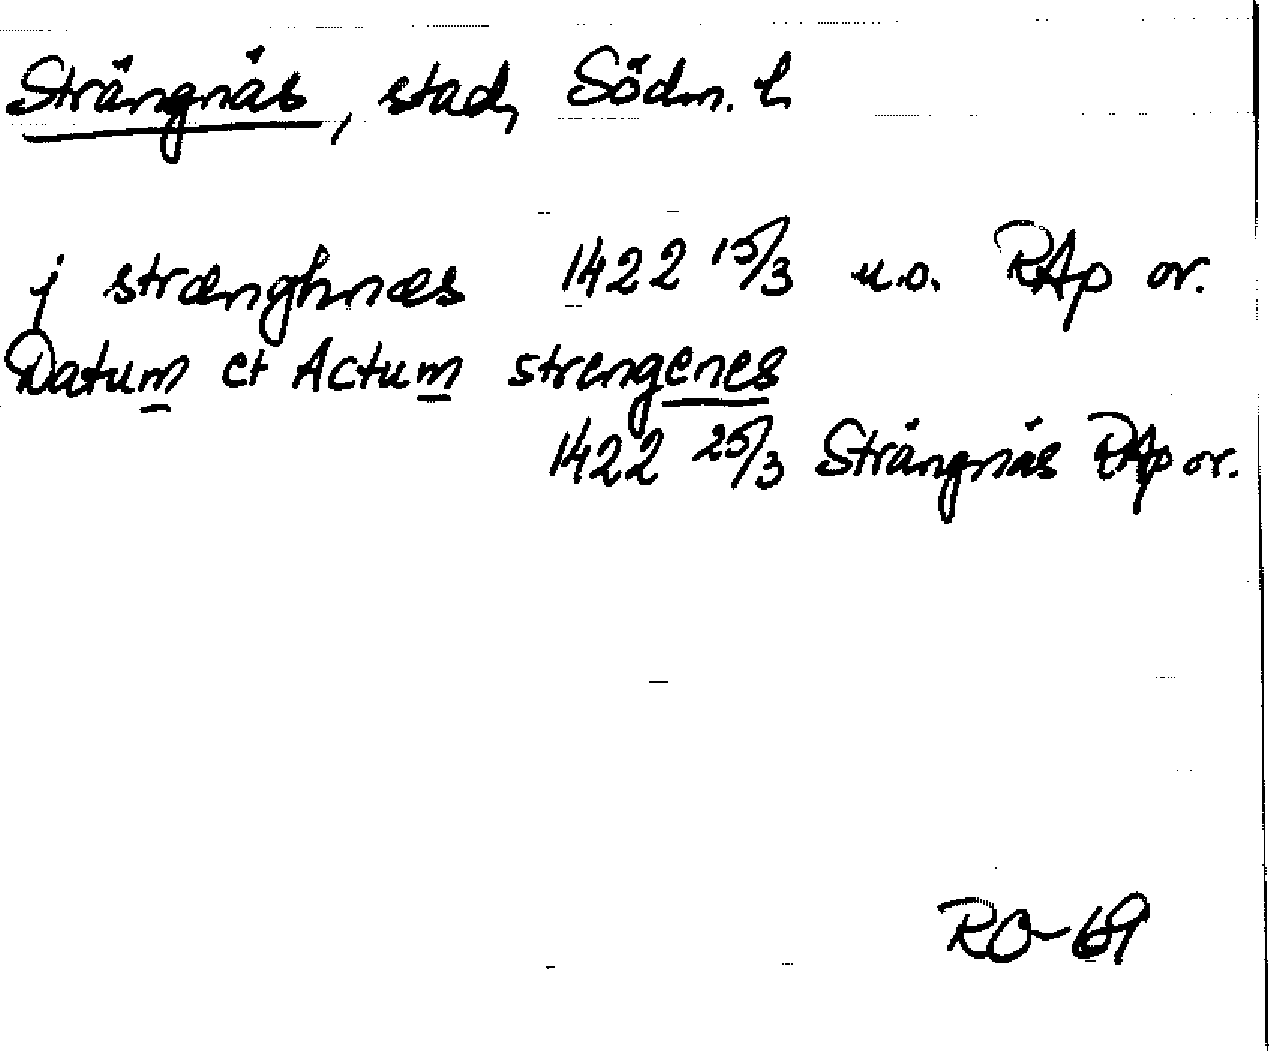 Strängnäs, stad, Södm. l.
j strænghnæs 1422 15/3 u.o. RAp or.
Datum et Actum strengenes
1422 25/3 Strängnäs RAp or.
RO-69